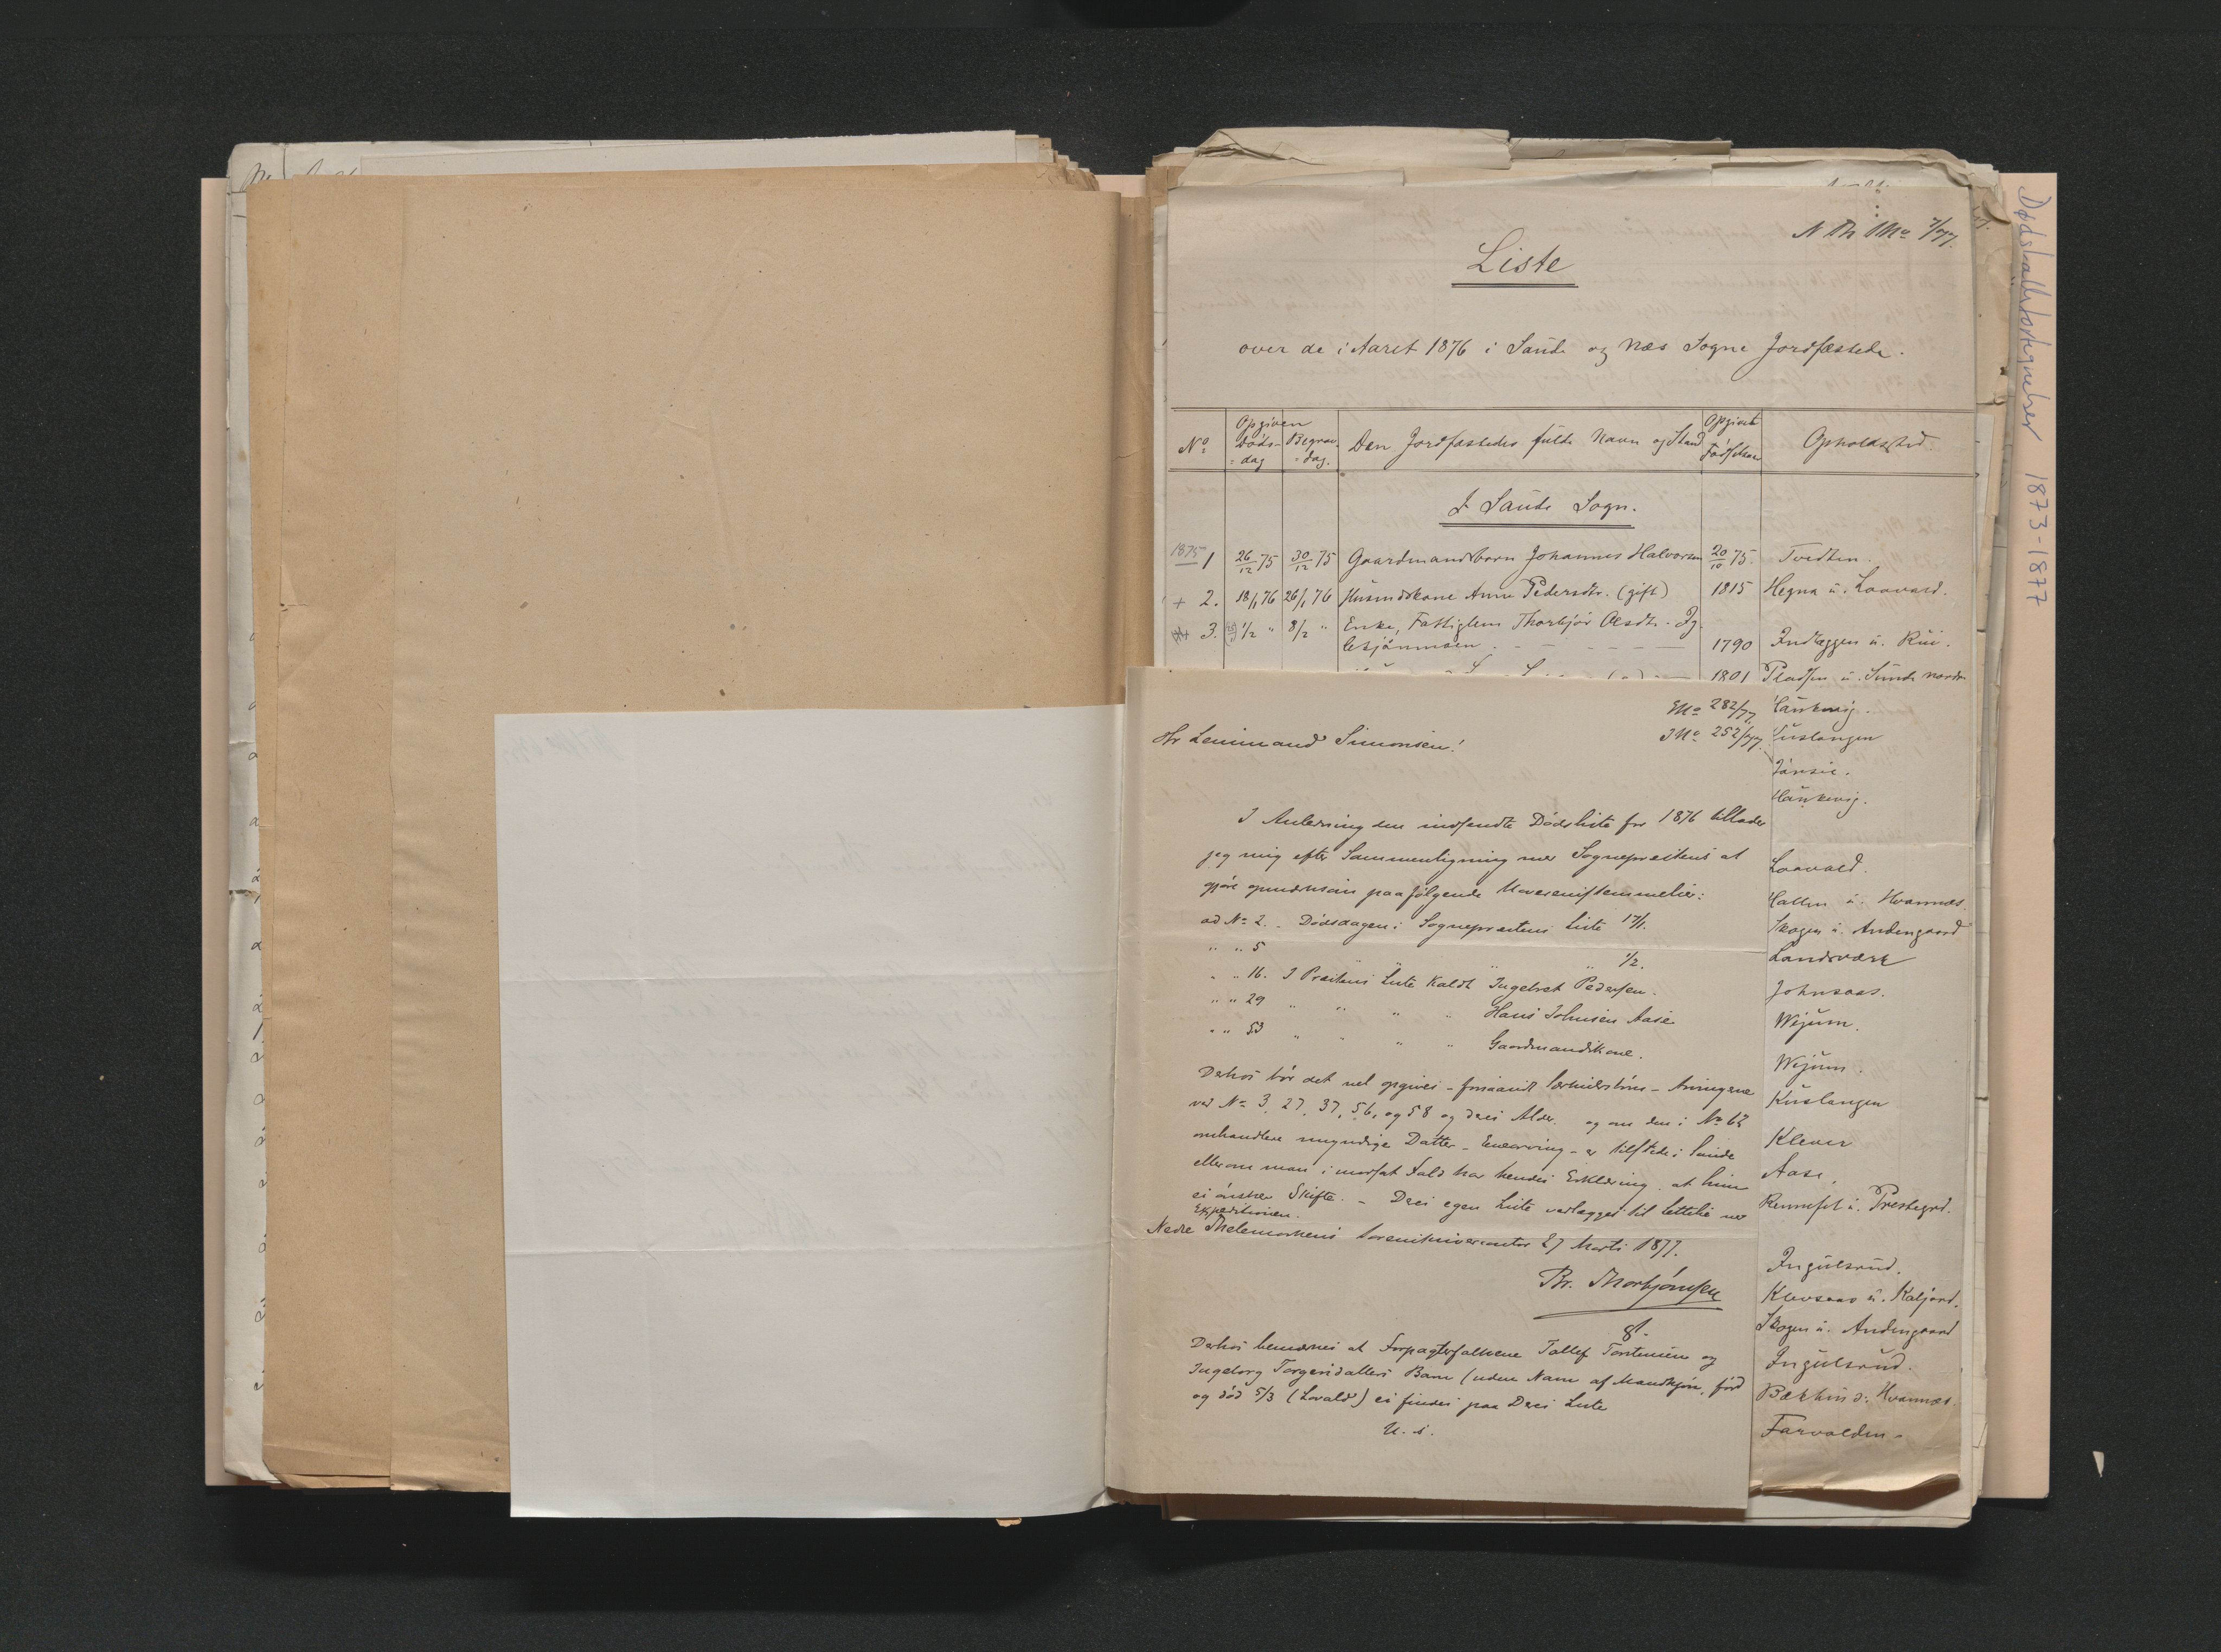 N Th JNo 7/77.
Liste
over de i Aaret 1876 i Saude og Næs Sogne Jordfæstede.
No
Opgiven
Döds-
=dag
Begrav.
=dag.
Den Jordfæstedes fulde Navn og Stand
Opgivet
Födselsaar
Opholdssted.
I Saude Sogn.
1875 1 26/12 75 30/12 75 Gaardmandsbarn Johannes Halvorsen 20/10 75. Tvedten.
+ 2. 18/1 76 26/1 76 Husmdskone Anne Pedersdtr. (gift) 1815 Hegna u. Laavald.
3. 1/2 " 8/2 " Enke, Fattiglem Thorbjör Olsdtr. Ig-
lesjönmoen. 1790 Indlæggen u. Rui.
1801 Pladsen u. Sunde nordre
Haukvig.
Kuslangen
Jönsie.
Haukevig.
Laavald.
Hallen u. Hvannæs.
Skogen u. Andengaard
Landsværk
Johnsaas.
Wejum.
Wejum.
Kuslangen
Klever
Aase.
Rennefot u. Prestegrd.
Ingulsrud.
Klevsaas u. Kaljord.
Skogen u. Andengaard
Ingulsrud.
Bækhus u. Hvannæs.
Farvolden.
ENo 282/77
JNo 252/77
Hr Lensmand Simonsen!
I Anledning den indsendte Dödsliste for 1876 tillader
jeg mig efter Sammenligning med Sognepræstens at
gjöre opmærksom paa fölgende Uoverensstemmelser:
ad No 2. Dödsdagen i Sognepræstens Liste 17/1.
" " 5 " " 1/2.
" " 16. I Præstens Liste kaldt Ingebret Pedersen.
" " 29 " " " " Hans Johnsen Aase
" " 53 " " " " Gaardmandskone.
Derhos bör det vel opgives - forsaavidt - Arvingerne
ved No 3, 27, 37, 56, og 58 og deres Alder. og om den i No 62
omhandlede umyndige Datter - Enearving - er tilstede i Saude
eller om man i modsat Fald har hendes Erklæring, at hun
ei önsker Skifte. - Deres egen Liste vedlægges til Lettelse ved
Expeditionen.
Nedre Thelemarkens Sorenskriverkontor 27 Marts 1877.
Br. Thorbjörnsen
Derhos bemærkes at Forpagterfolkene Tollef Torstensen og
Ingeborg Torgersdatters Barn (uden Navn af Mandkjön, föd
og död 5/3 (Lovald) ei findes paa Deres Liste
U. s.
Dødsfallsfortegnelser 1873-1877